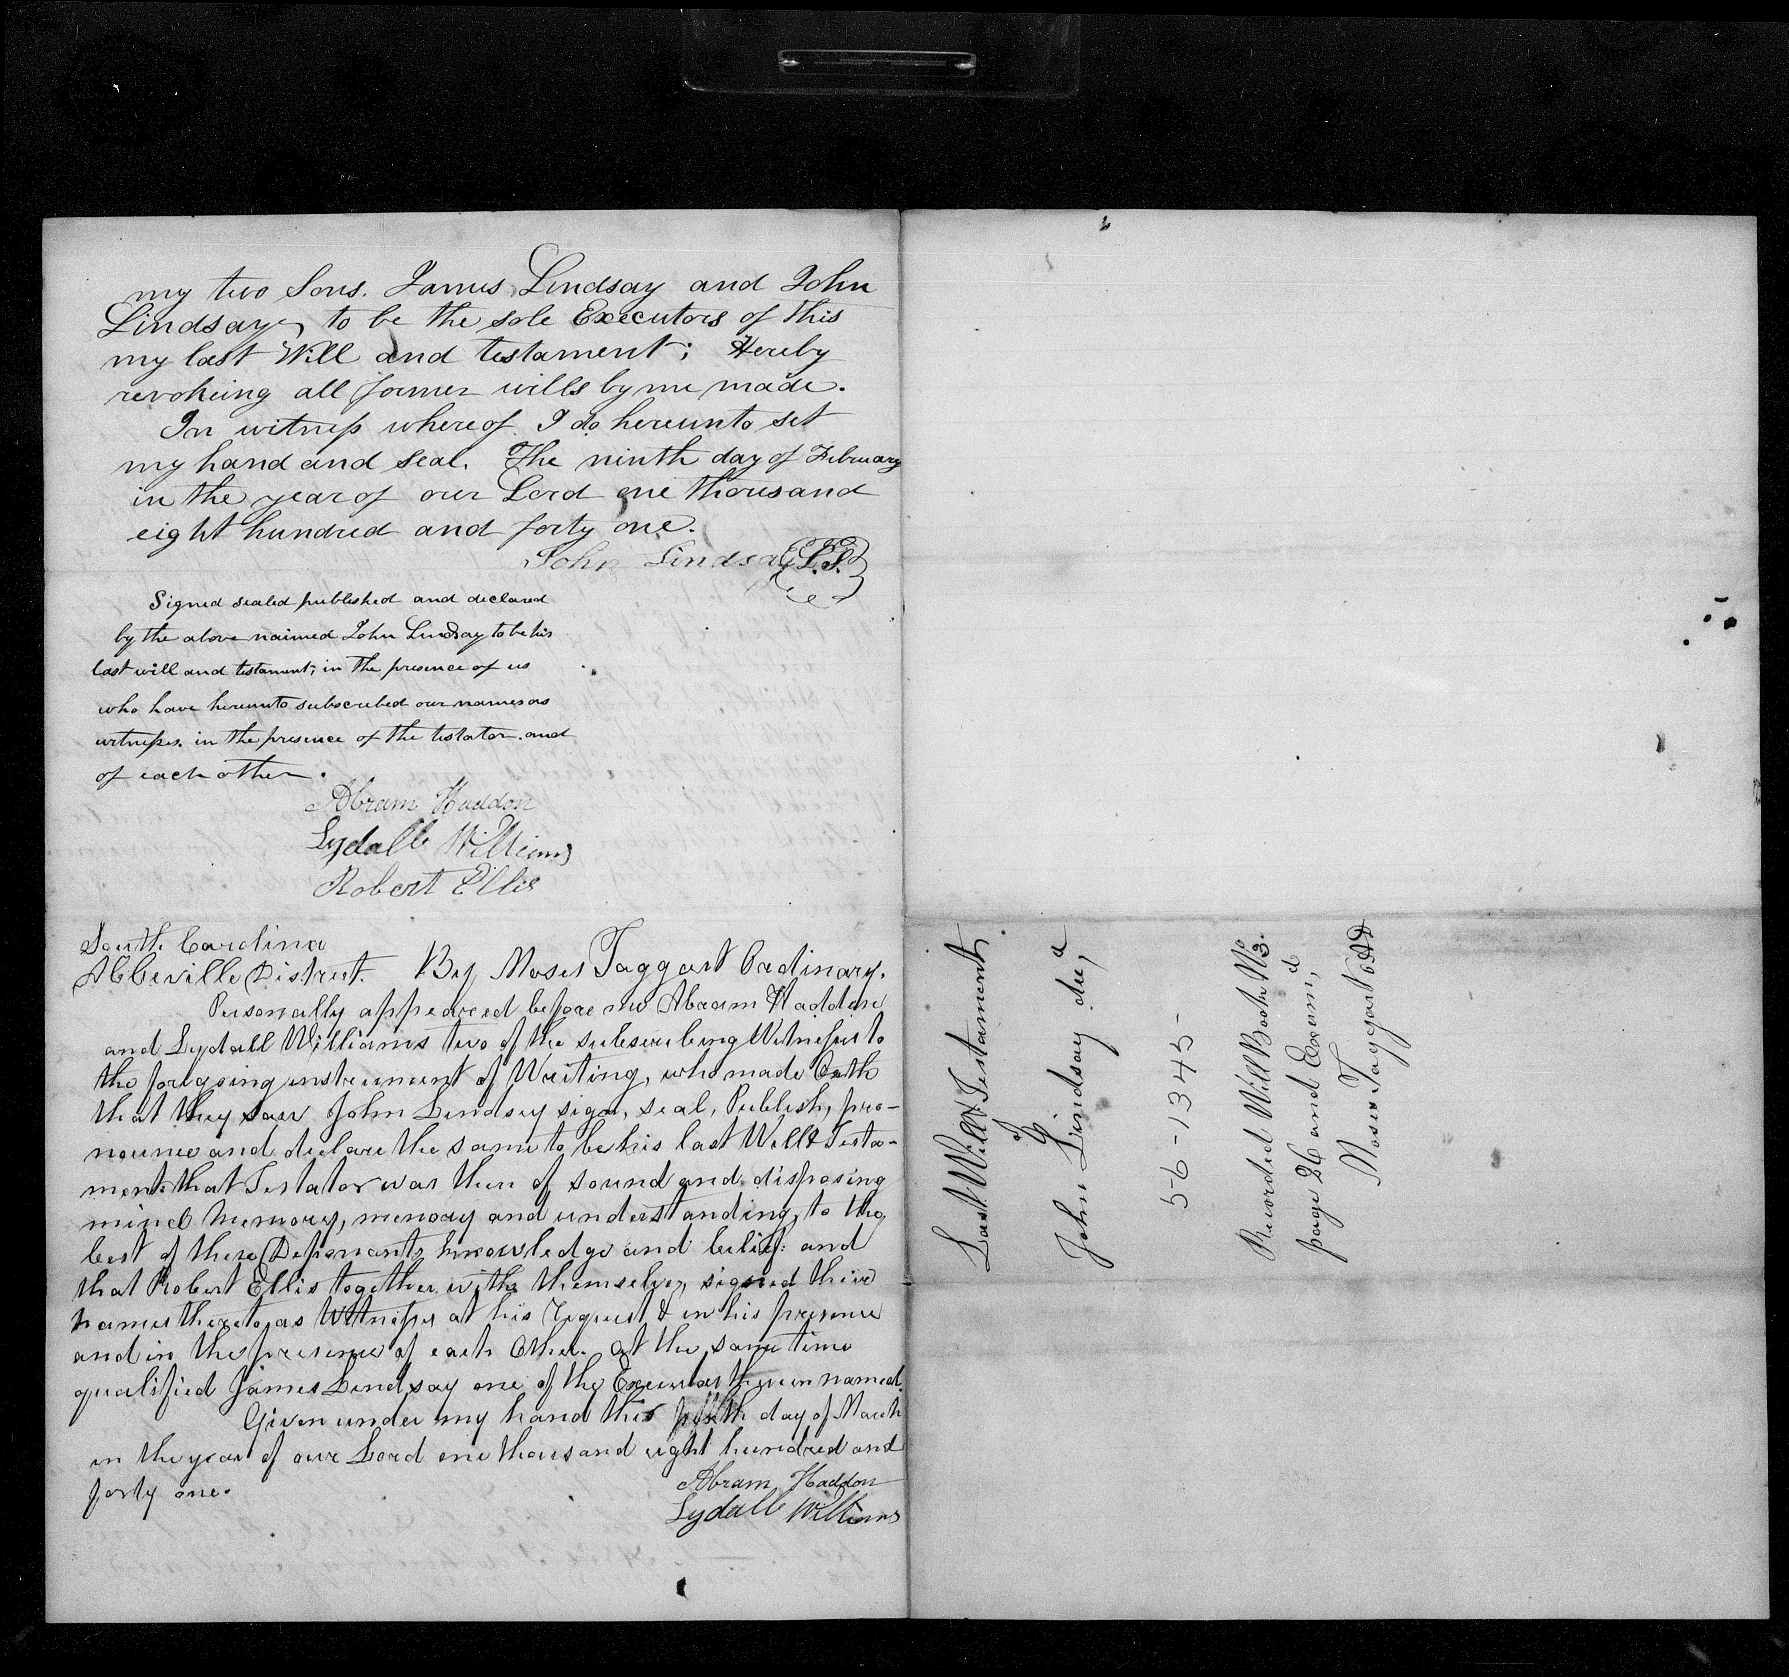 my two Sons. James Lindsay and John
Lindsay, to be the sole Executors of this
my last Will and testament; Hereby
revokeing all former wills by me made.
In witness whereof. I do hereunto set
my hand and seal. The ninth day of February
in the year of our Lord one thousand
eight hundred and forty one.
John Lindsay L.S.
Signed sealed published and declared
by the above naimed John Lindsay to be his
last will and testament; in the presence of us
who have hereunto subscribed our names as
witnesses. in the presence of the testator. and
of each other.
Abram Haddon
Lydall Williams
Robert Ellis
South Carolina
Abbeville District. By Moses Taggart Ordinary.
Personally appeared before me Abram Haddon
and Lydall Williams two of the subscribing Witnesses to
the foregoing instrument of Writing, who made Oath
that they saw John Lindsay sign, seal, Publish, pro-
nounce and declare the same to be his last Will & Testa-
ment that Testator was then of sound and disposing
mind Memory, memory and understanding, to the
best of these Deponants knowledge and belief: and
that Robert Ellis together with themselves, signed their
names thereto as Witnesses at his request & in his presence
and in the presence of each Other. at the same time
qualified James Lindsay one of the Executors therein named.
Given under my hand this day of March
in the year of our Lord one thousand eight hundred and
forty one.
Abram Haddon
Lydall Williams
Last Will & Testament
of
John Lindsay decd
56-1345-
Recorded Will Book No 3.
page 26 and Examd,
Moses Taggart OAD